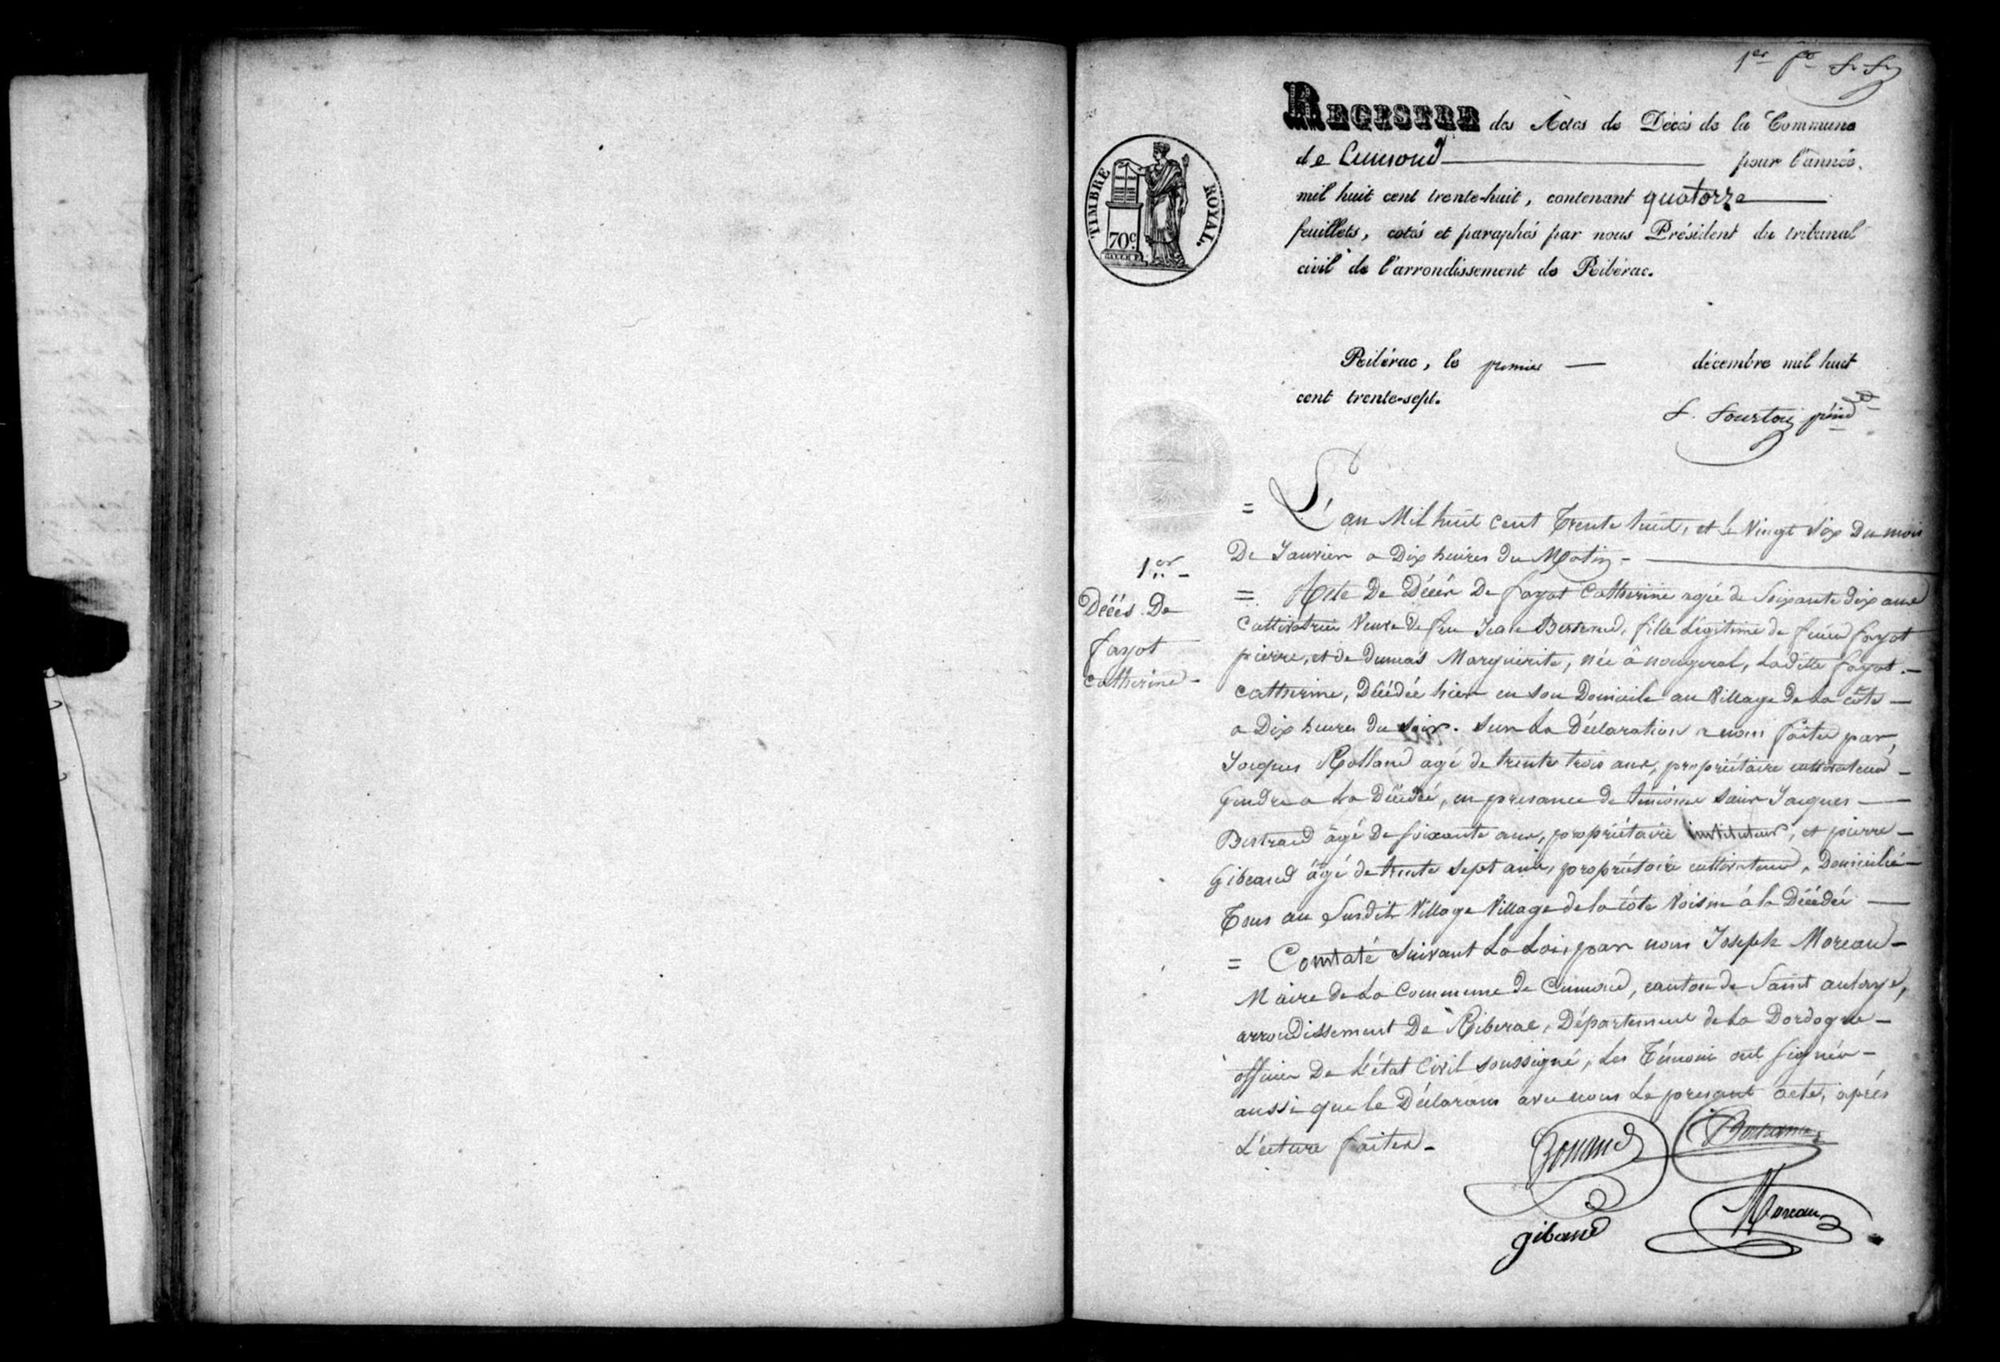 1er fo
REGISTRE des Actes de Décès de la Commune
de Cumond pour l'année
mil huit cent trente-huit, contenant quatorze
feuillets, cotés et paraphés par nous Président du tribunal
civil de l'arrondissement de Ribérac.
TIMBRE ROYAL.
70c
Ribérac, le premier décembre mil huit
cent trente-sept.
L'an Mil huit cent Trente huit, et le Vingt Six Du mois
De Janvier a Dix heures du Matin -
1er
Décès De
fayot
catherine -
= Acte De Décér De fayot Catherine agée de Soixante dix ans
Cultivatrice Veuve de feu Jean Bertrand, fille Légitime de feu fayot
pierre, et de Dumas Marguerite, née a nougerol, Ladite fayot -
Catherine, Décédée hier en son Domicile au Village de La côte -
a Dix heures du soir. Sur La Déclaration a nous faites par
Jacques Rolland agé de trente trois ans, propriétaire cultivateur -
Gendre a La Décédé, en presance de temoins Sieur Jacques -
Bertrand âgé De Soixante ans, propriétaire instituteur, et pierre -
Gibeaud âgé de trente sept ans, propriétaire cultivateur, Domicilié -
Tous au Susdit Village Village de la côte Voisin à la Décédé -
= Contaté Suivant La Loi, par nous Joseph Moreau -
Maire de La Commune de Cumond, canton de Saint aulaye,
arrondissement De Riberac, Département de La Dordogne -
officier De L'état Civil soussigné, Les Témoin ont Signér -
aussi que le Déclarans avec nous Le presant acte, après
L'ecture faiter -
Bertrand
gibaud
Moreau